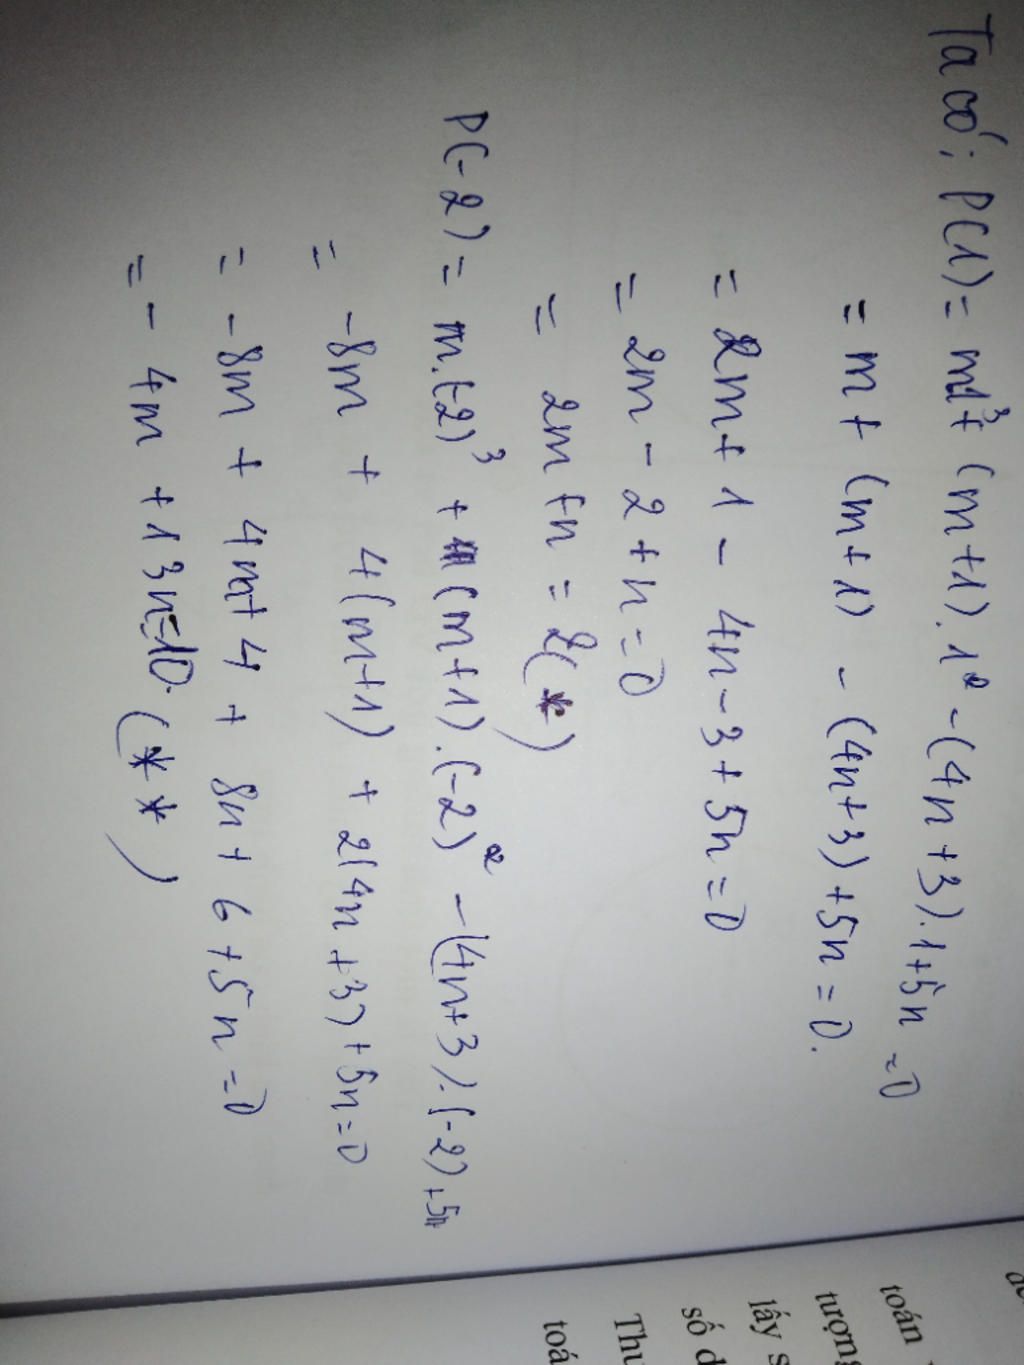 Ta có: P(1) = m1³ + (m+1).1² - (4n+3).1+5n = 0
= m + (m+1) - (4n+3)+5n = 0.
= 2m+1 - 4n-3+5n=0
= 2m - 2+n=0
= 2m+n = 2(*)
P(-2) = m.(-2)³ + (m+1).(-2)² - (4n+3).(-2)+5n
= -8m + 4(m+1) + 2(4n+3)+5n=0
= -8m + 4m+4 + 8n+6+5n=0
= - 4m +13n=10. (**)
toán
tượng
lấy s
số d
Thu
toá